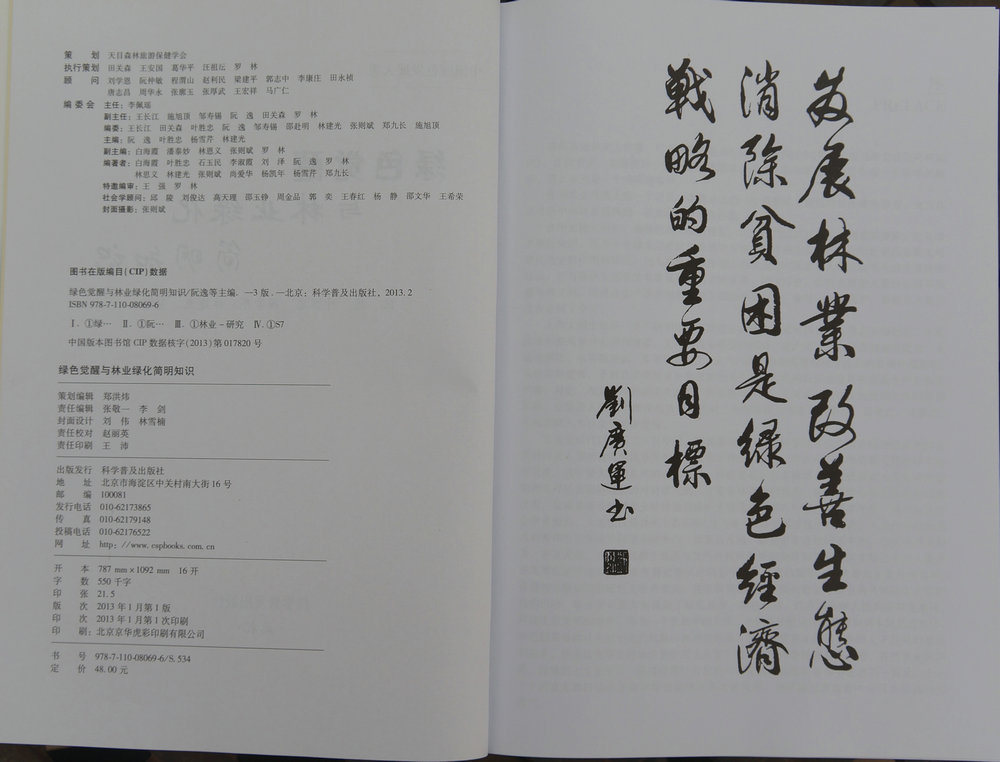 策　划　天目森林旅游保健学会
执行策划　田关森　王安国　葛华平　汪祖坛　罗　林
顾　问　刘学恩　阮仲敏　程渭山　赵利民　梁建平　郭志中　李康庄　田永祯
唐志昌　周华永　张廓玉　张厚武　王宏祥　马广仁
编委会　主任：李佩瑶
副主任：王长江　施旭顶　邹寿锡　阮　逸　田关森　罗　林
编委：王长江　田关森　叶胜忠　阮逸　邹寿锡　邵赴明　林建光　张则斌　郑九长　施旭顶
主编：阮　逸　叶胜忠　杨雪芹　林建光
副主编：白海霞　潘泰妙　林思义　张则斌　罗　林
编著者：白海霞　叶胜忠　石玉民　李淑霞　刘　泽　阮　逸　罗　林
林思义　林建光　张则斌　尚爱华　杨凯年　杨雪芹　郑九长
特邀编审：王　强　罗　林
社会学顾问：邱　陵　刘俊达　高天理　邵玉铮　周金品　郭　奕　王春红　杨　静　邵文华　王希荣
封面摄影：张则斌
图书在版编目（CIP）数据
绿色觉醒与林业绿化简明知识/阮逸等主编. —3版. —北京：科学普及出版社，2013.2
ISBN 978-7-110-08069-6
Ⅰ.①绿… Ⅱ.①阮… Ⅲ.①林业－研究 Ⅳ.①S7
中国版本图书馆CIP数据核字（2013）第017820号
绿色觉醒与林业绿化简明知识
策划编辑　郑洪炜
责任编辑　张敬一　李　剑
封面设计　刘　伟　林雪楠
责任校对　赵丽英
责任印刷　王　沛
出版发行　科学普及出版社
地　址　北京市海淀区中关村南大街16号
邮　编　100081
发行电话　010-62173865
传　真　010-62179148
投稿电话　010-62176522
网　址　http://www.cspbooks.com.cn
开　本　787 mm×1092 mm　16开
字　数　550千字
印　张　21.5
版　次　2013年1月第1版
印　次　2013年1月第1次印刷
印　刷：北京京华虎彩印刷有限公司
书　号　978-7-110-08069-6/S.534
定　价　48.00元
发展林業改善生態
消除貧困是绿色經濟
戰略的重要目標
劉廣運书